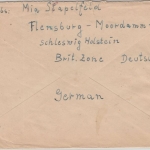 Mia Stapelfeld
Flensburg - Moordamm
Schleswig Holstein
Brit. Zone Deutsc
German